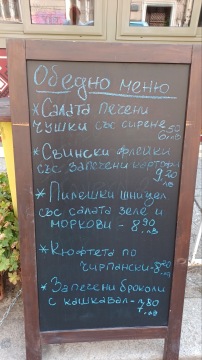 Обедно меню
*Салата печени
чушки със сирене 6 50 лв
*Свински флейки
със запечени картофи
9 20 лв
*Пилешки шницел
със салата зеле и
моркови - 8 90 лв
*Кюфтета по
чирпански - 8 20 лв
*Запечени броколи
с кашкавал - 7,80 лв